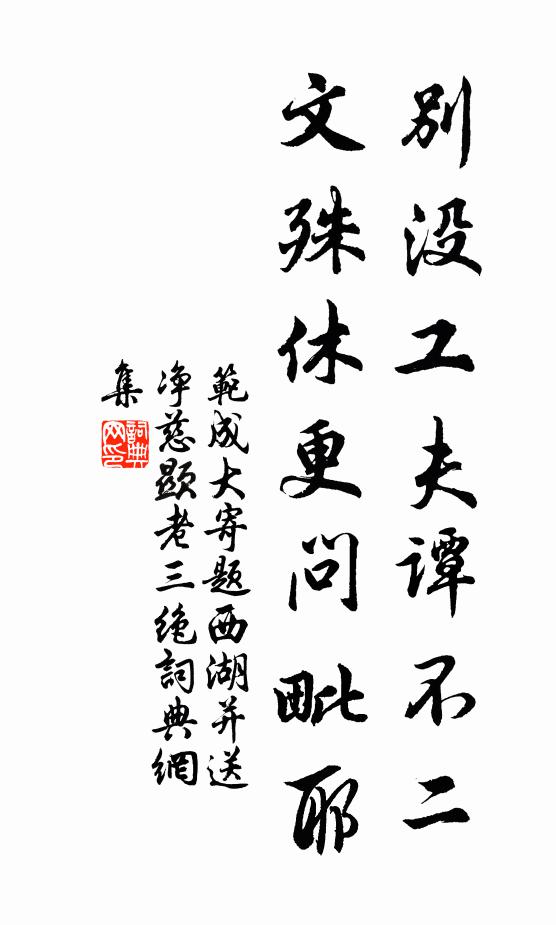 别没工夫谭不二
文殊休更问毗耶
範成大寄题西湖并送
净慈顯老三绝詞典網
集
詞典网印